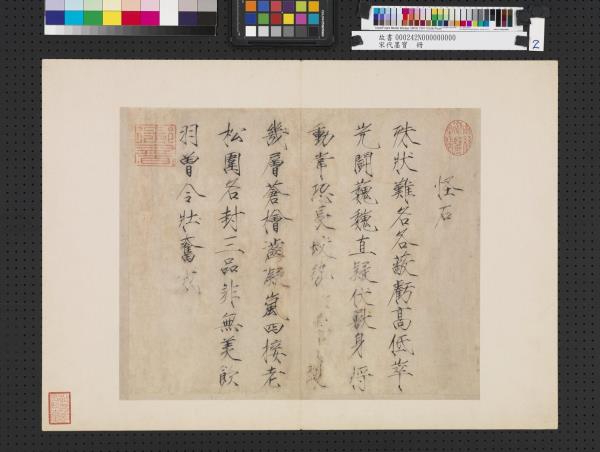 故書000242N000000000
宋代墨寶 冊
2
怪石
殊狀難名各蔽虧高低萃〻
鬪巍巍直疑伏獸身將
動常恐長蛟
幾層蒼檜凝嵐四接老
松圍名封三品非無美飲
羽曾令壯奮